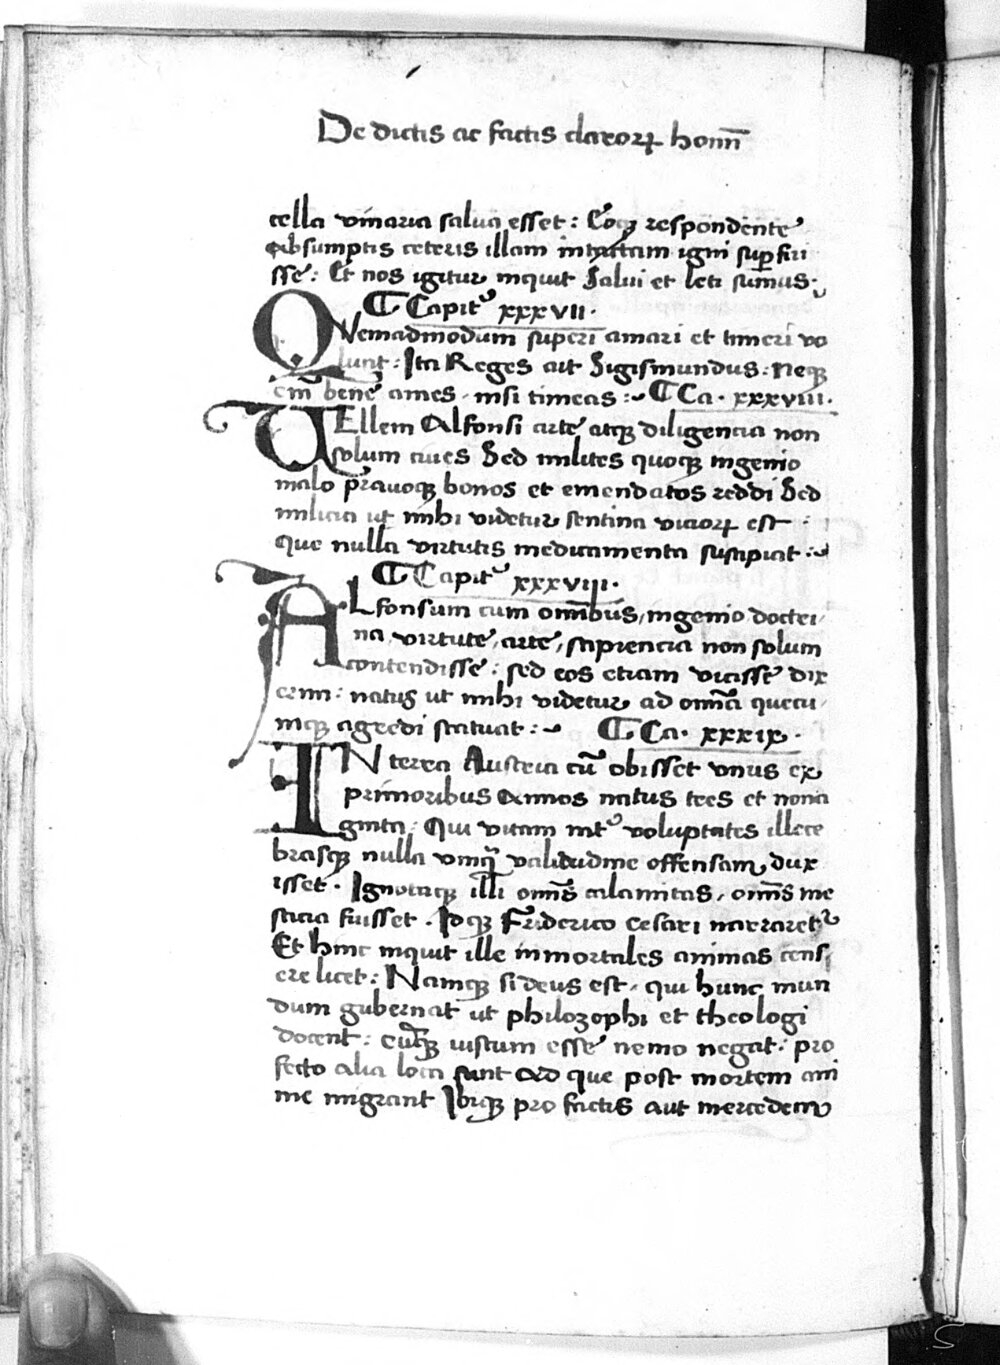 De dictis ac factis claroꝝ homi͞n
cella vinaria salua esset: Eoqꝫ respondente
Absumptis ceteris illam intactam igni suꝑfui
sse: Et nos igitur inquit Salui et leti sumus.
Capitꝰ xxxvii.
QVemadmodum superi amari et timeri vo
lunt: Ita Reges ait Sigismundus: Neqꝫ
em̄ bene ames, nisi timeas: Ca. xxxviii.
VEllem Alfonsi arte atqꝫ diligencia non
solum ciues Sed milites quoqꝫ ingenio
malo prauoqꝫ bonos et emendatos reddi Sed
milicia ut mihi videtur sentina vicioꝝ est
que nulla virtutis medicamenta suscipiat:
Capitꝰ xxxviii.
ALfonsum cum omībus, ingenio doctri,
na, virtute, arte, sapiencia non solum
contendisse: sed eos etiam vicisse dix
erim: natus ut mihi videtur ad omīa quecu,
mqꝫ agredi statuat: Ca. xxxix.
INterea Austria cū obisset vnus ex
primoribus Annos natus tres et nona
ginta: Qui vitam intꝰ voluptates illece
brasqꝫ nulla vmqᷓ validudine offensam dux
isset. Ignotaqꝫ illi omīs calamitas, omīs me
sticia fuisset. Idqꝫ Friderico Cesari narraretᷣ
Et hinc inquit ille inmortales animas cens,
ere licet: Namqꝫ si deus est, qui hunc mun
dum gubernat ut philozophi et theologi
docent: eūqꝫ iustum esse nemo negat: pro
fecto alia loca sunt Ad que post mortem ani
me migrant Ibiqꝫ pro factis aut mercedem